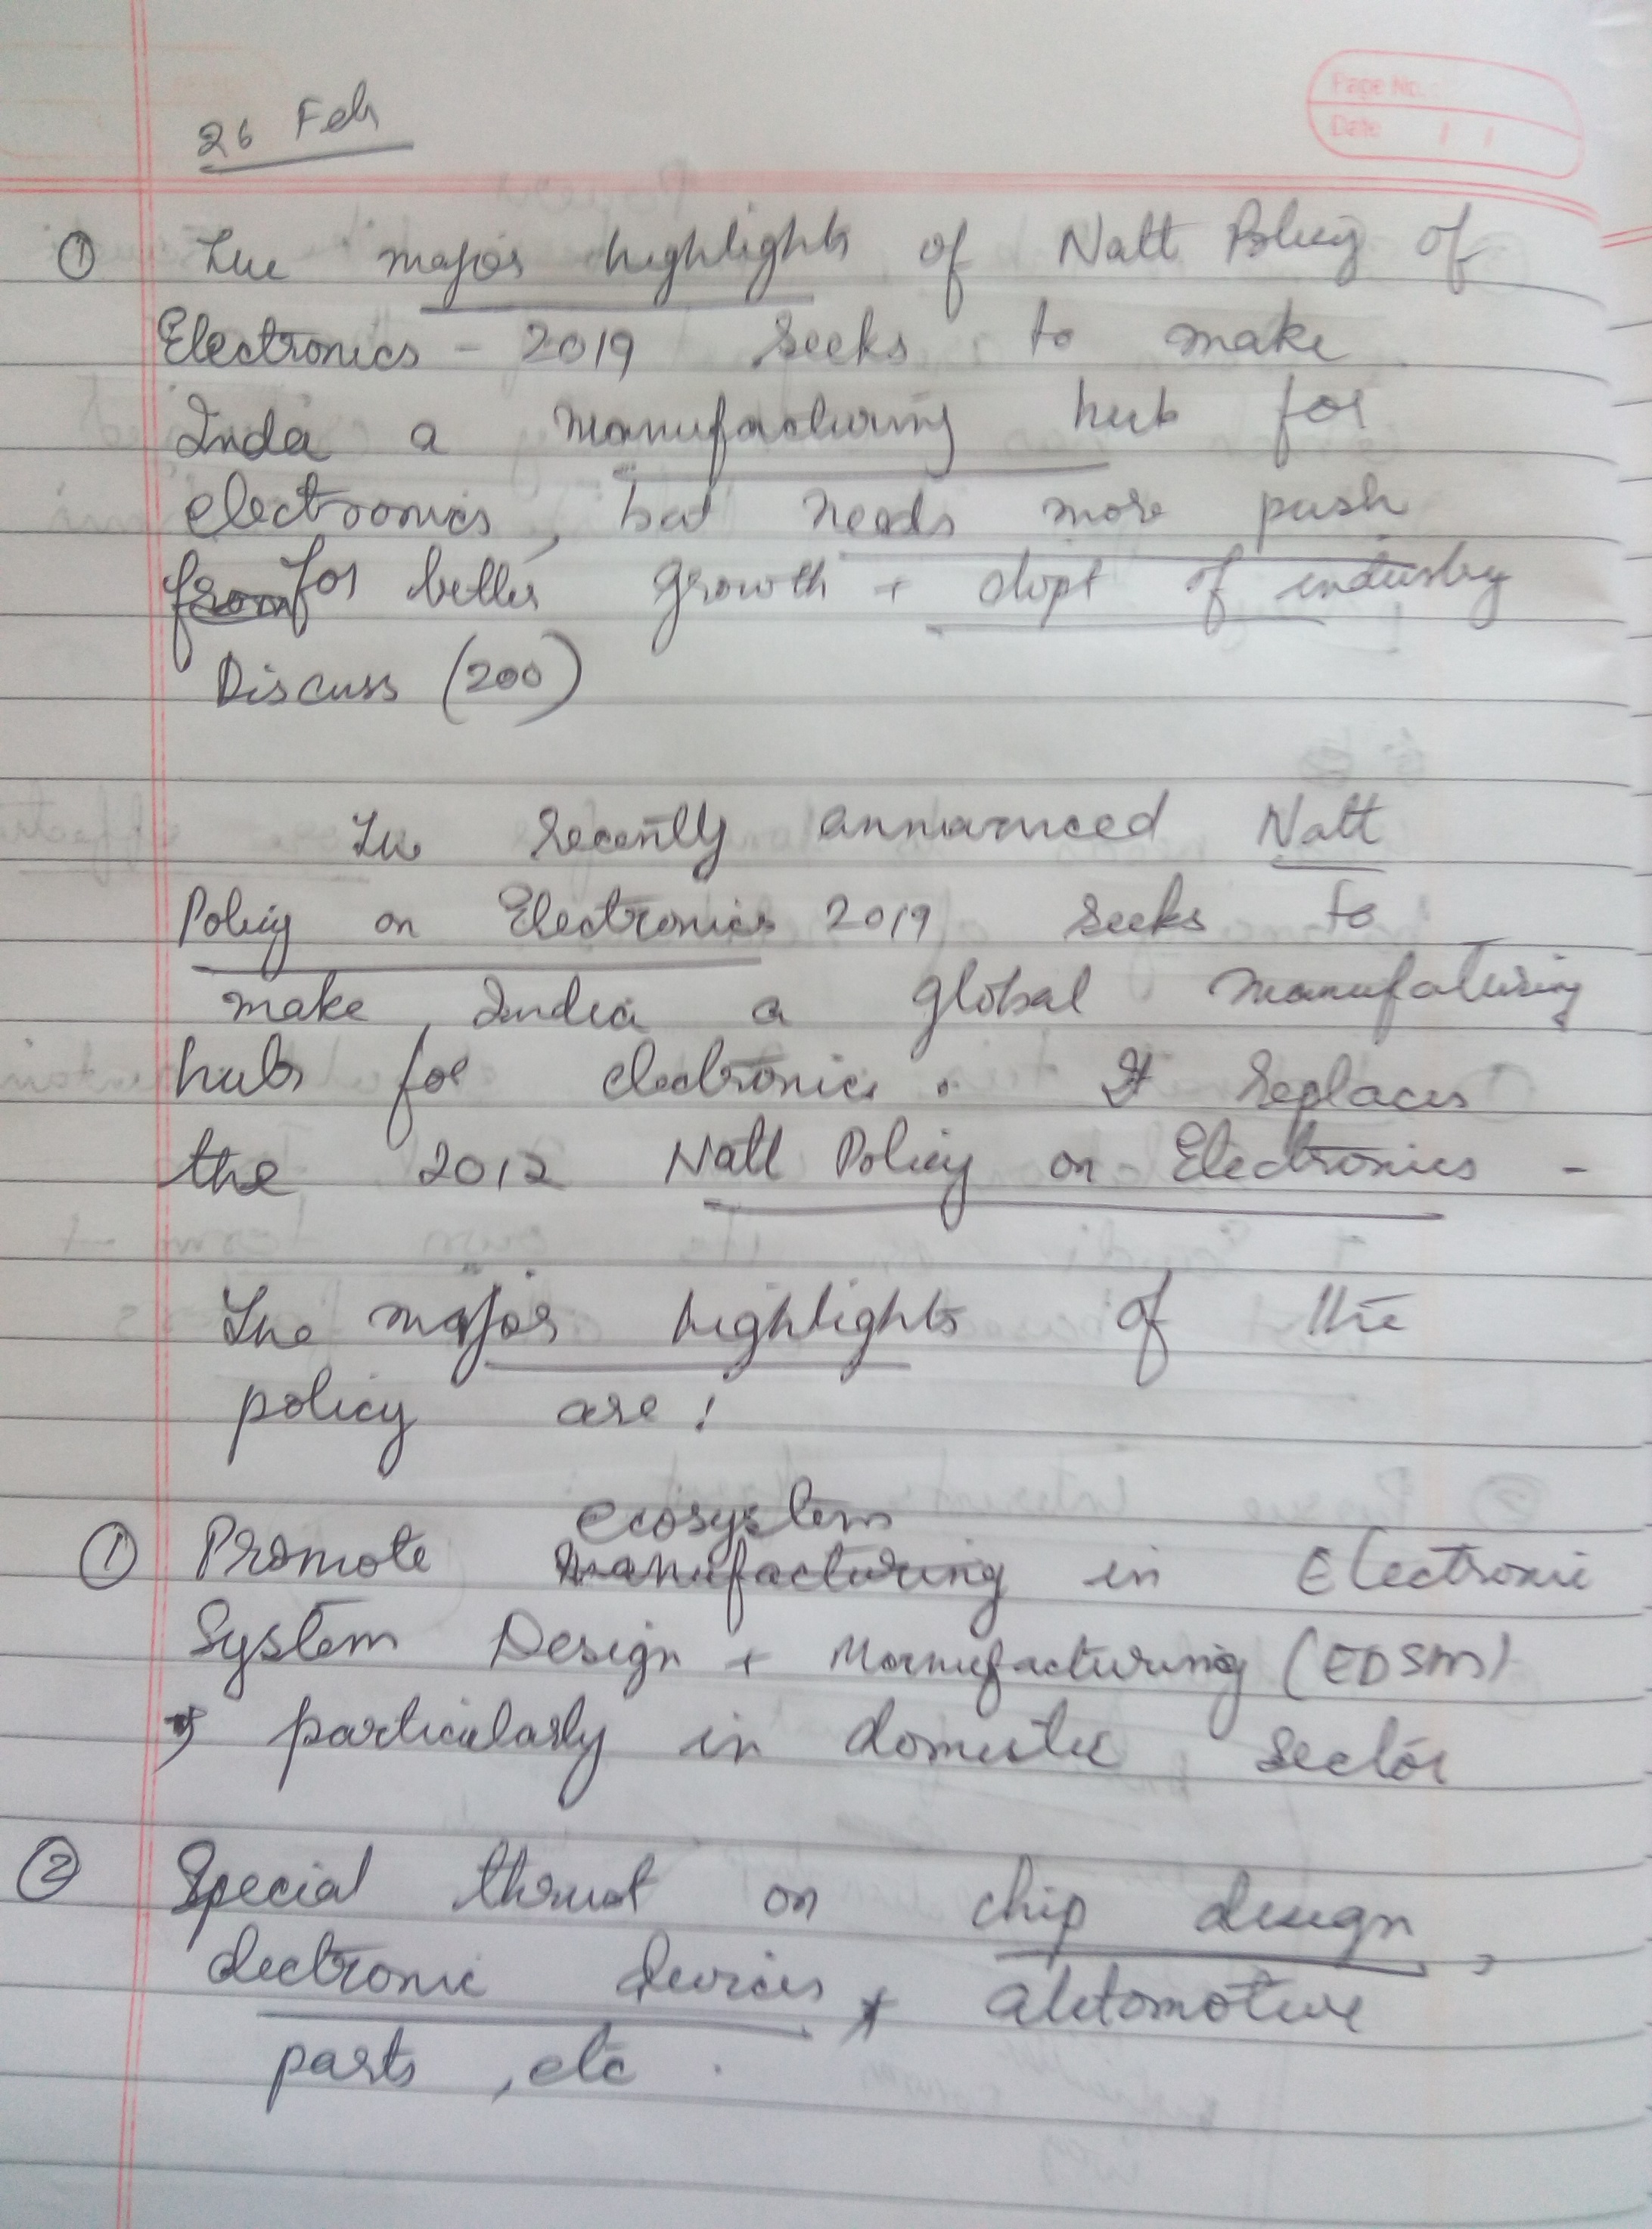 26 Feb
Page No.
Date
① The major highlights of Natl Policy of
Electronics - 2019 seeks to make
India a manufacturing hub for
electronics, but needs more push
from for better growth + dvpt of industry
Discuss (200)
The recently announced Natl
Policy on Electronics 2019 seeks to
make India a global manufaturing
hub for electronics. It replaces
the 2012 Natl Policy on Electronics -
The major highlights of the
policy are:
ecosystem
① Promote manufacturing in Electronic
System Design + Manufacturing (EDSM)
particularly in domestic sector
② Special thrust on chip design,
electronic devices, automotive
parts, etc.